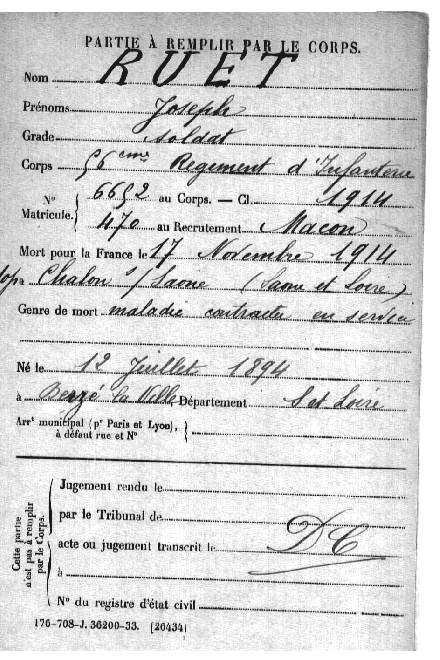 PARTIE À REMPLIR PAR LE CORPS.
Nom RUET
Prénoms Joseph
Grade soldat
Corps 56eme Regiment d'Infanterie
N° Matricule. { 6652 au Corps. — Cl. 1914
470 au Recrutement Macon
Mort pour la France le 17 Novembre 1914
à Chalon s/ Saone (Saone et Loire)
Genre de mort maladie contractée en service
Né le 12 Juillet 1894
à Berzé la Ville Département S et Loire
Arrt municipal (pr Paris et Lyon),
à défaut rue et N°
Cette partie
n'est pas à remplir
par le Corps.
Jugement rendu le
par le Tribunal de
acte ou jugement transcrit le DC
à
N° du registre d'état civil
176-708-J. 36200-33. [26434]